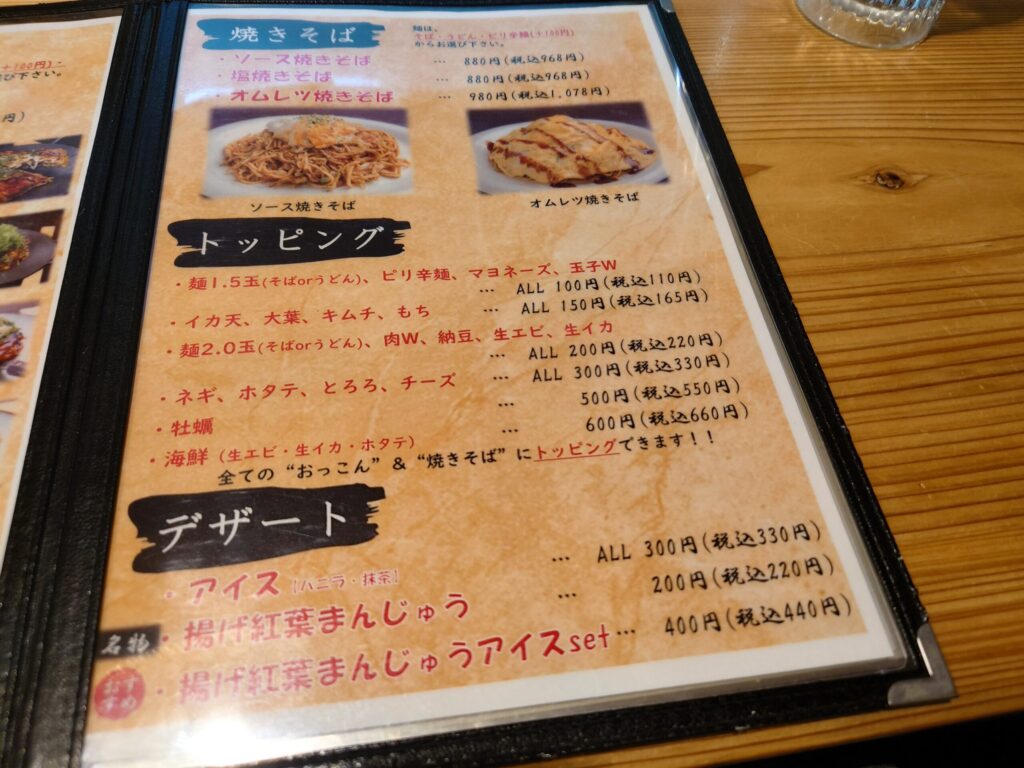 +100円)
び下さい。
円)
焼きそば
麺は、
そば・うどん・ピリ辛麺(+100円)
からお選び下さい。
・ソース焼きそば … 880円(税込968円)
・塩焼きそば … 880円(税込968円)
・オムレツ焼きそば … 980円(税込1,078円)
ソース焼きそば
オムレツ焼きそば
トッピング
・麺1.5玉(そばorうどん)、ピリ辛麺、マヨネーズ、玉子W
… ALL 100円(税込110円)
・イカ天、大葉、キムチ、もち … ALL 150円(税込165円)
・麺2.0玉(そばorうどん)、肉W、納豆、生エビ、生イカ
… ALL 200円(税込220円)
・ネギ、ホタテ、とろろ、チーズ … ALL 300円(税込330円)
・牡蠣 … 500円(税込550円)
・海鮮(生エビ・生イカ・ホタテ) … 600円(税込660円)
全ての“おっこん”&“焼きそば”にトッピングできます!!
デザート
・アイス[バニラ・抹茶] … ALL 300円(税込330円)
名物・揚げ紅葉まんじゅう … 200円(税込220円)
おすすめ・揚げ紅葉まんじゅうアイスset… 400円(税込440円)